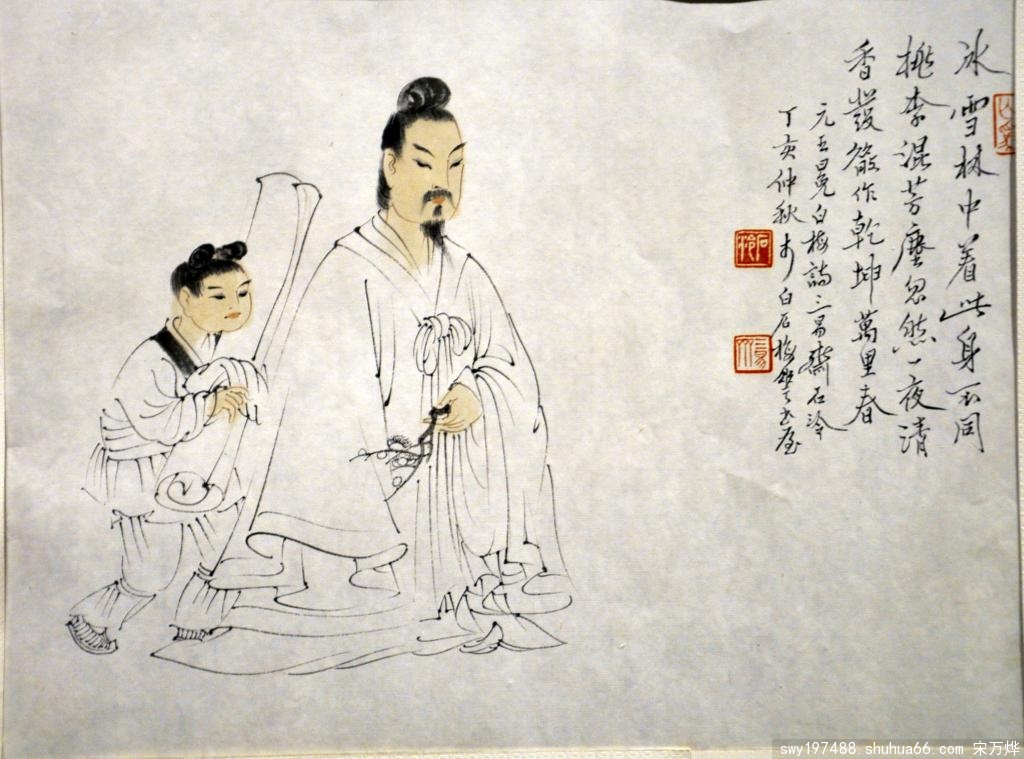 冰雪林中着此身不同
桃李混芳塵忽然一夜清
香發散作乾坤萬里春
元王冕白梅詩三易齋石泠
丁亥仲秋于白石梅屋
swy197488.shuhua66.com 宋万烨